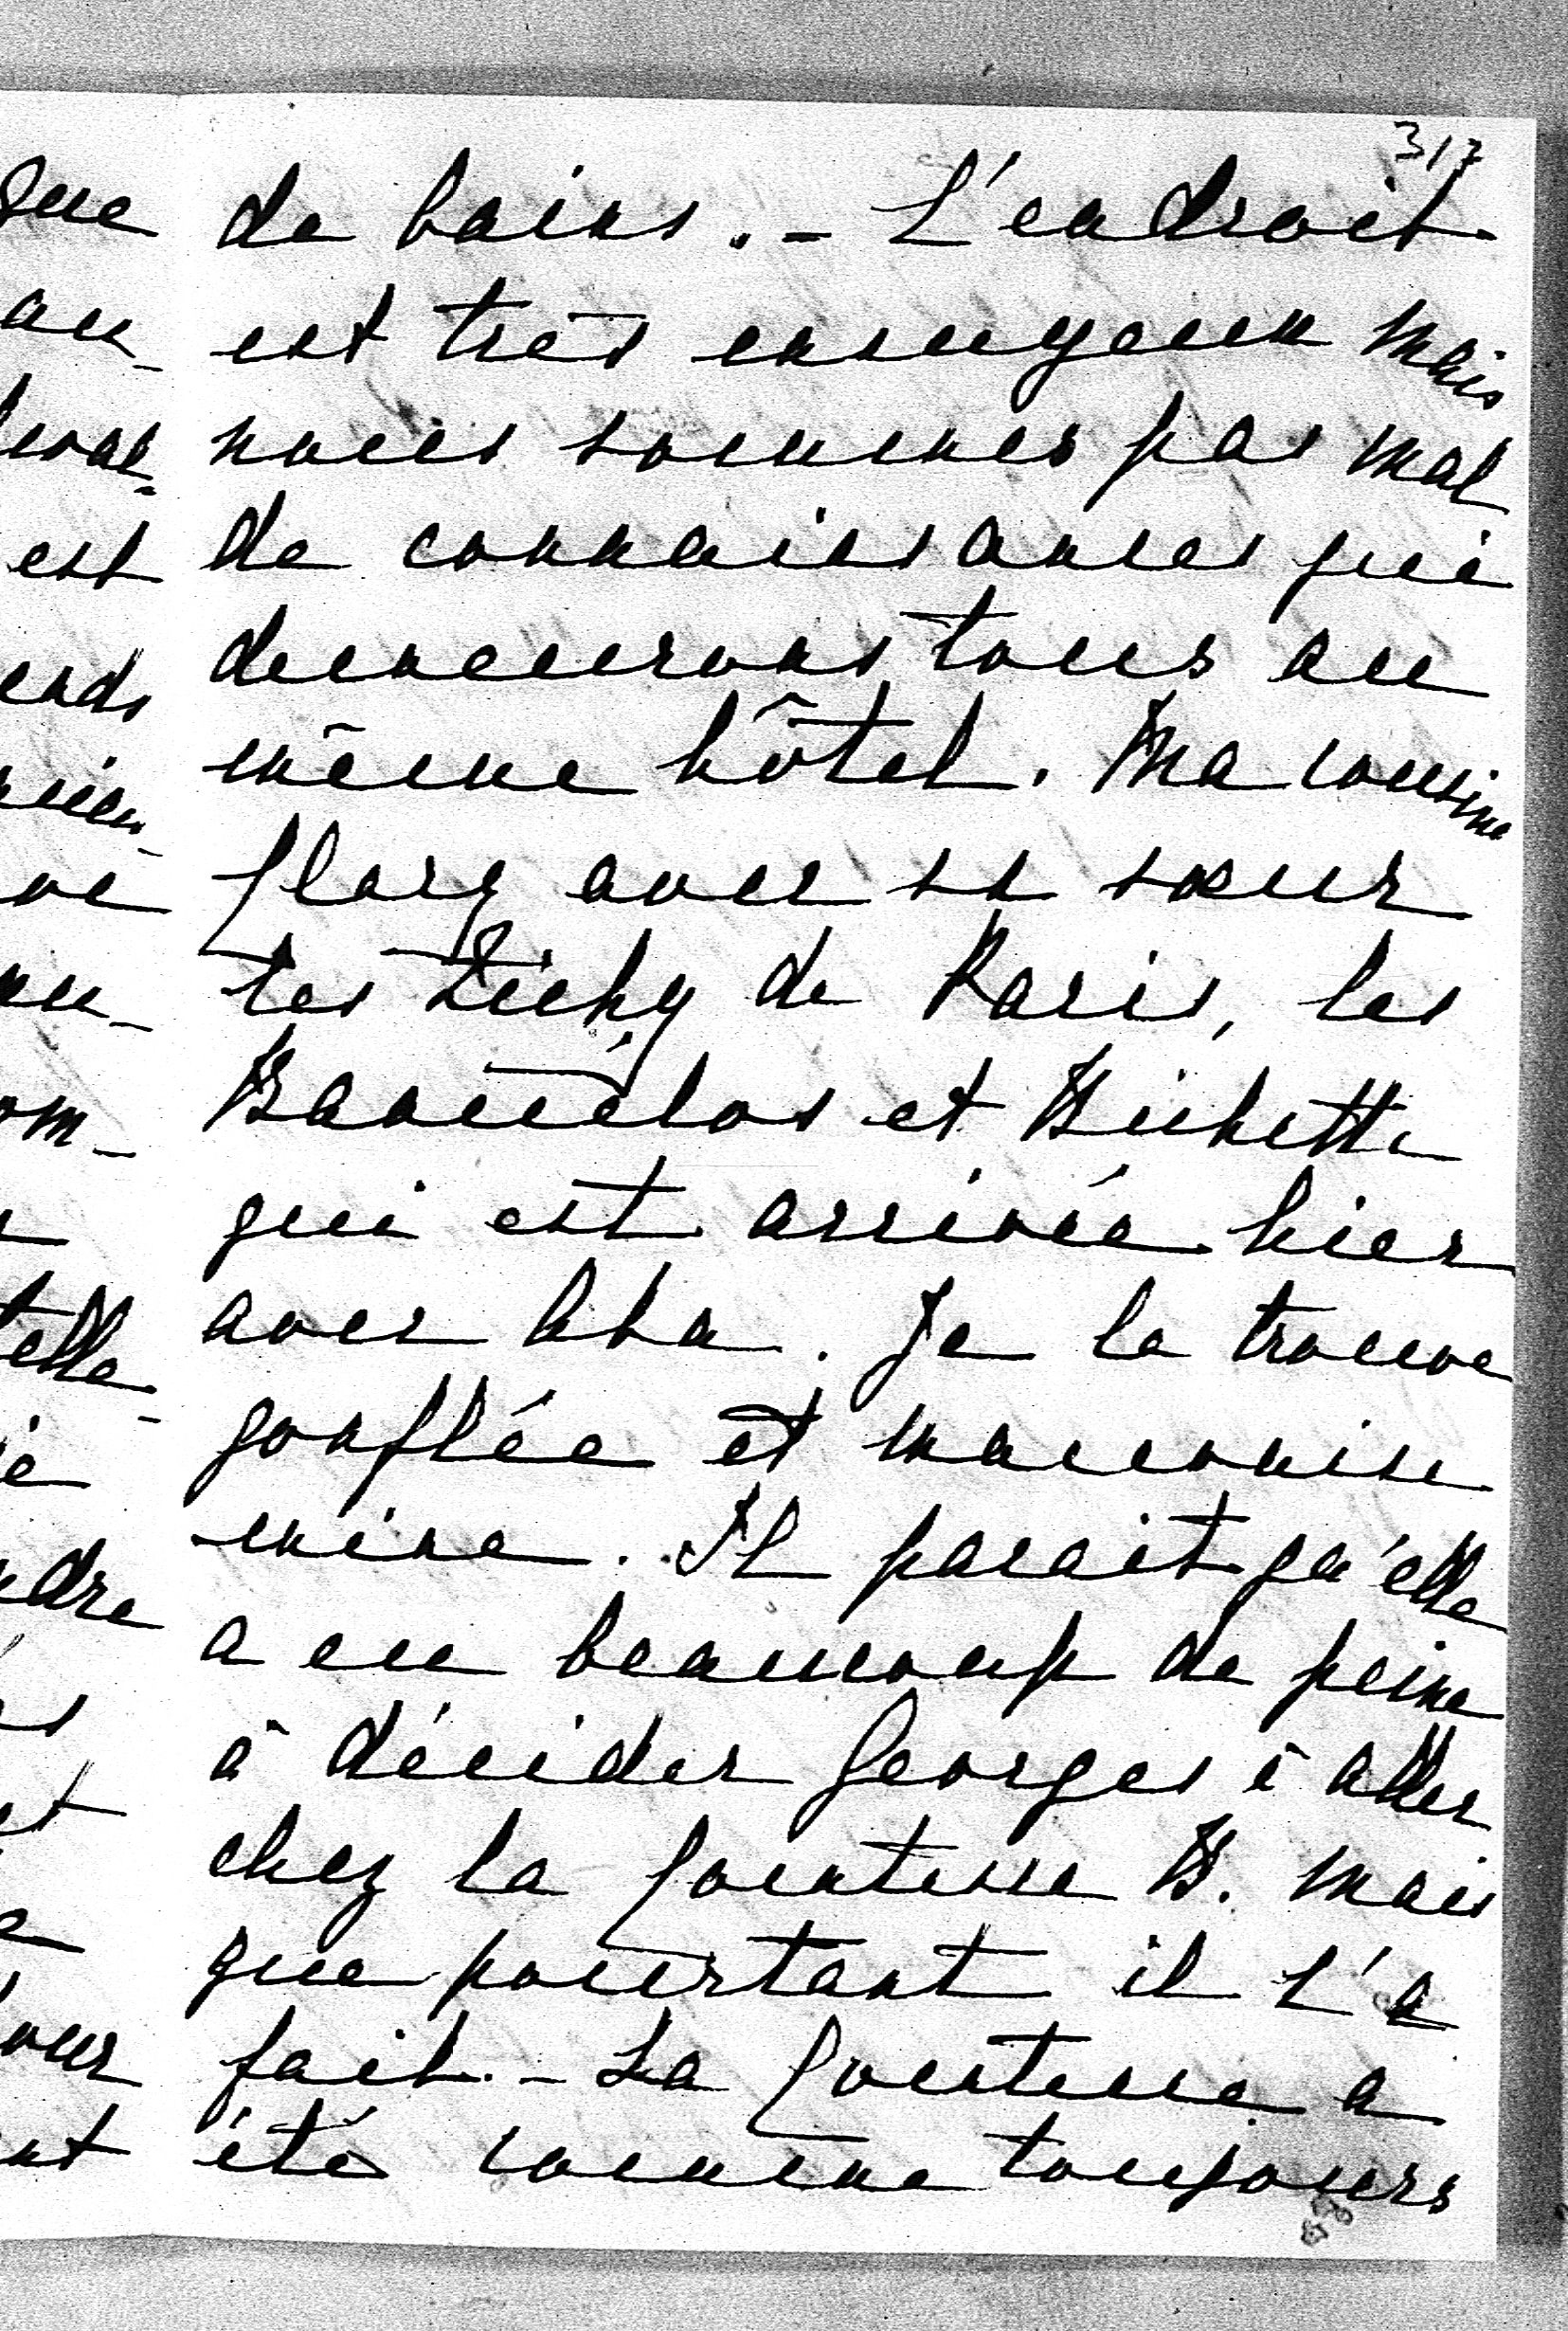 317
de bains. - L'endroit
est très ennuyeux mais
nous sommes pas mal
de connaissances qui
demeurons tous au
même hôtel. Ma cousine
Clary avec sa sœur
les Zichy de Paris, les
Bañuelos et Bichette
qui est arrivée hier
avec Aba. Je la trouve
gonflée et mauvaise
mine. Il parait qu'elle
a eu beaucoup de peine
à décider Georges à aller
chez la Comtesse B. mais
que pourtant il l'a
fait. - La Comtesse a
été comme toujours
que
au-
est
ve
om-
telle-
ndre
et